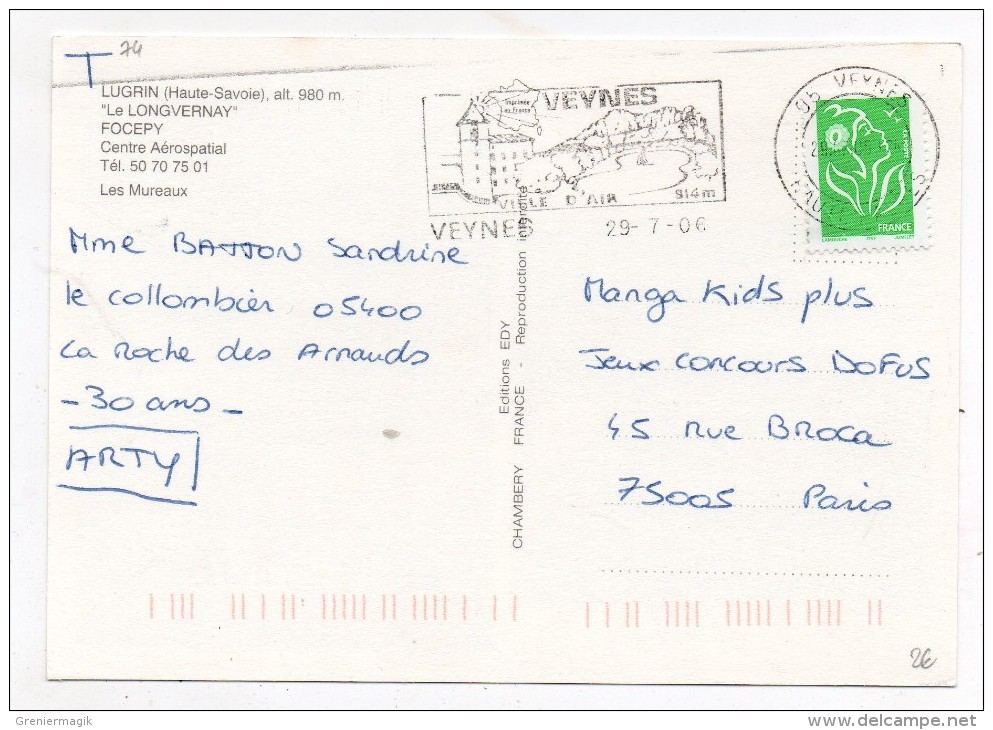 T 74
LUGRIN (Haute-Savoie), alt. 980 m.
"Le LONGVERNAY"
FOCEPY
Centre Aérospatial
Tél. 50 70 75 01
Les Mureaux
Mme BATTON Sandrine
le collombier 05400
La Roche des Arnauds
- 30 ans -
ARTY
Imprimée en France
VEYNES
VILLE D'AIR
914m
VEYNES 29-7-06
05 VEYNES
FRANCE
LAMOUCHE
CHAMBERY FRANCE - Reproduction interdite
Editions EDY
Manga Kids plus
Jeux concours DOFUS
45 Rue BROCA
75005 Paris
2€
Greniermagik
www.delcampe.net